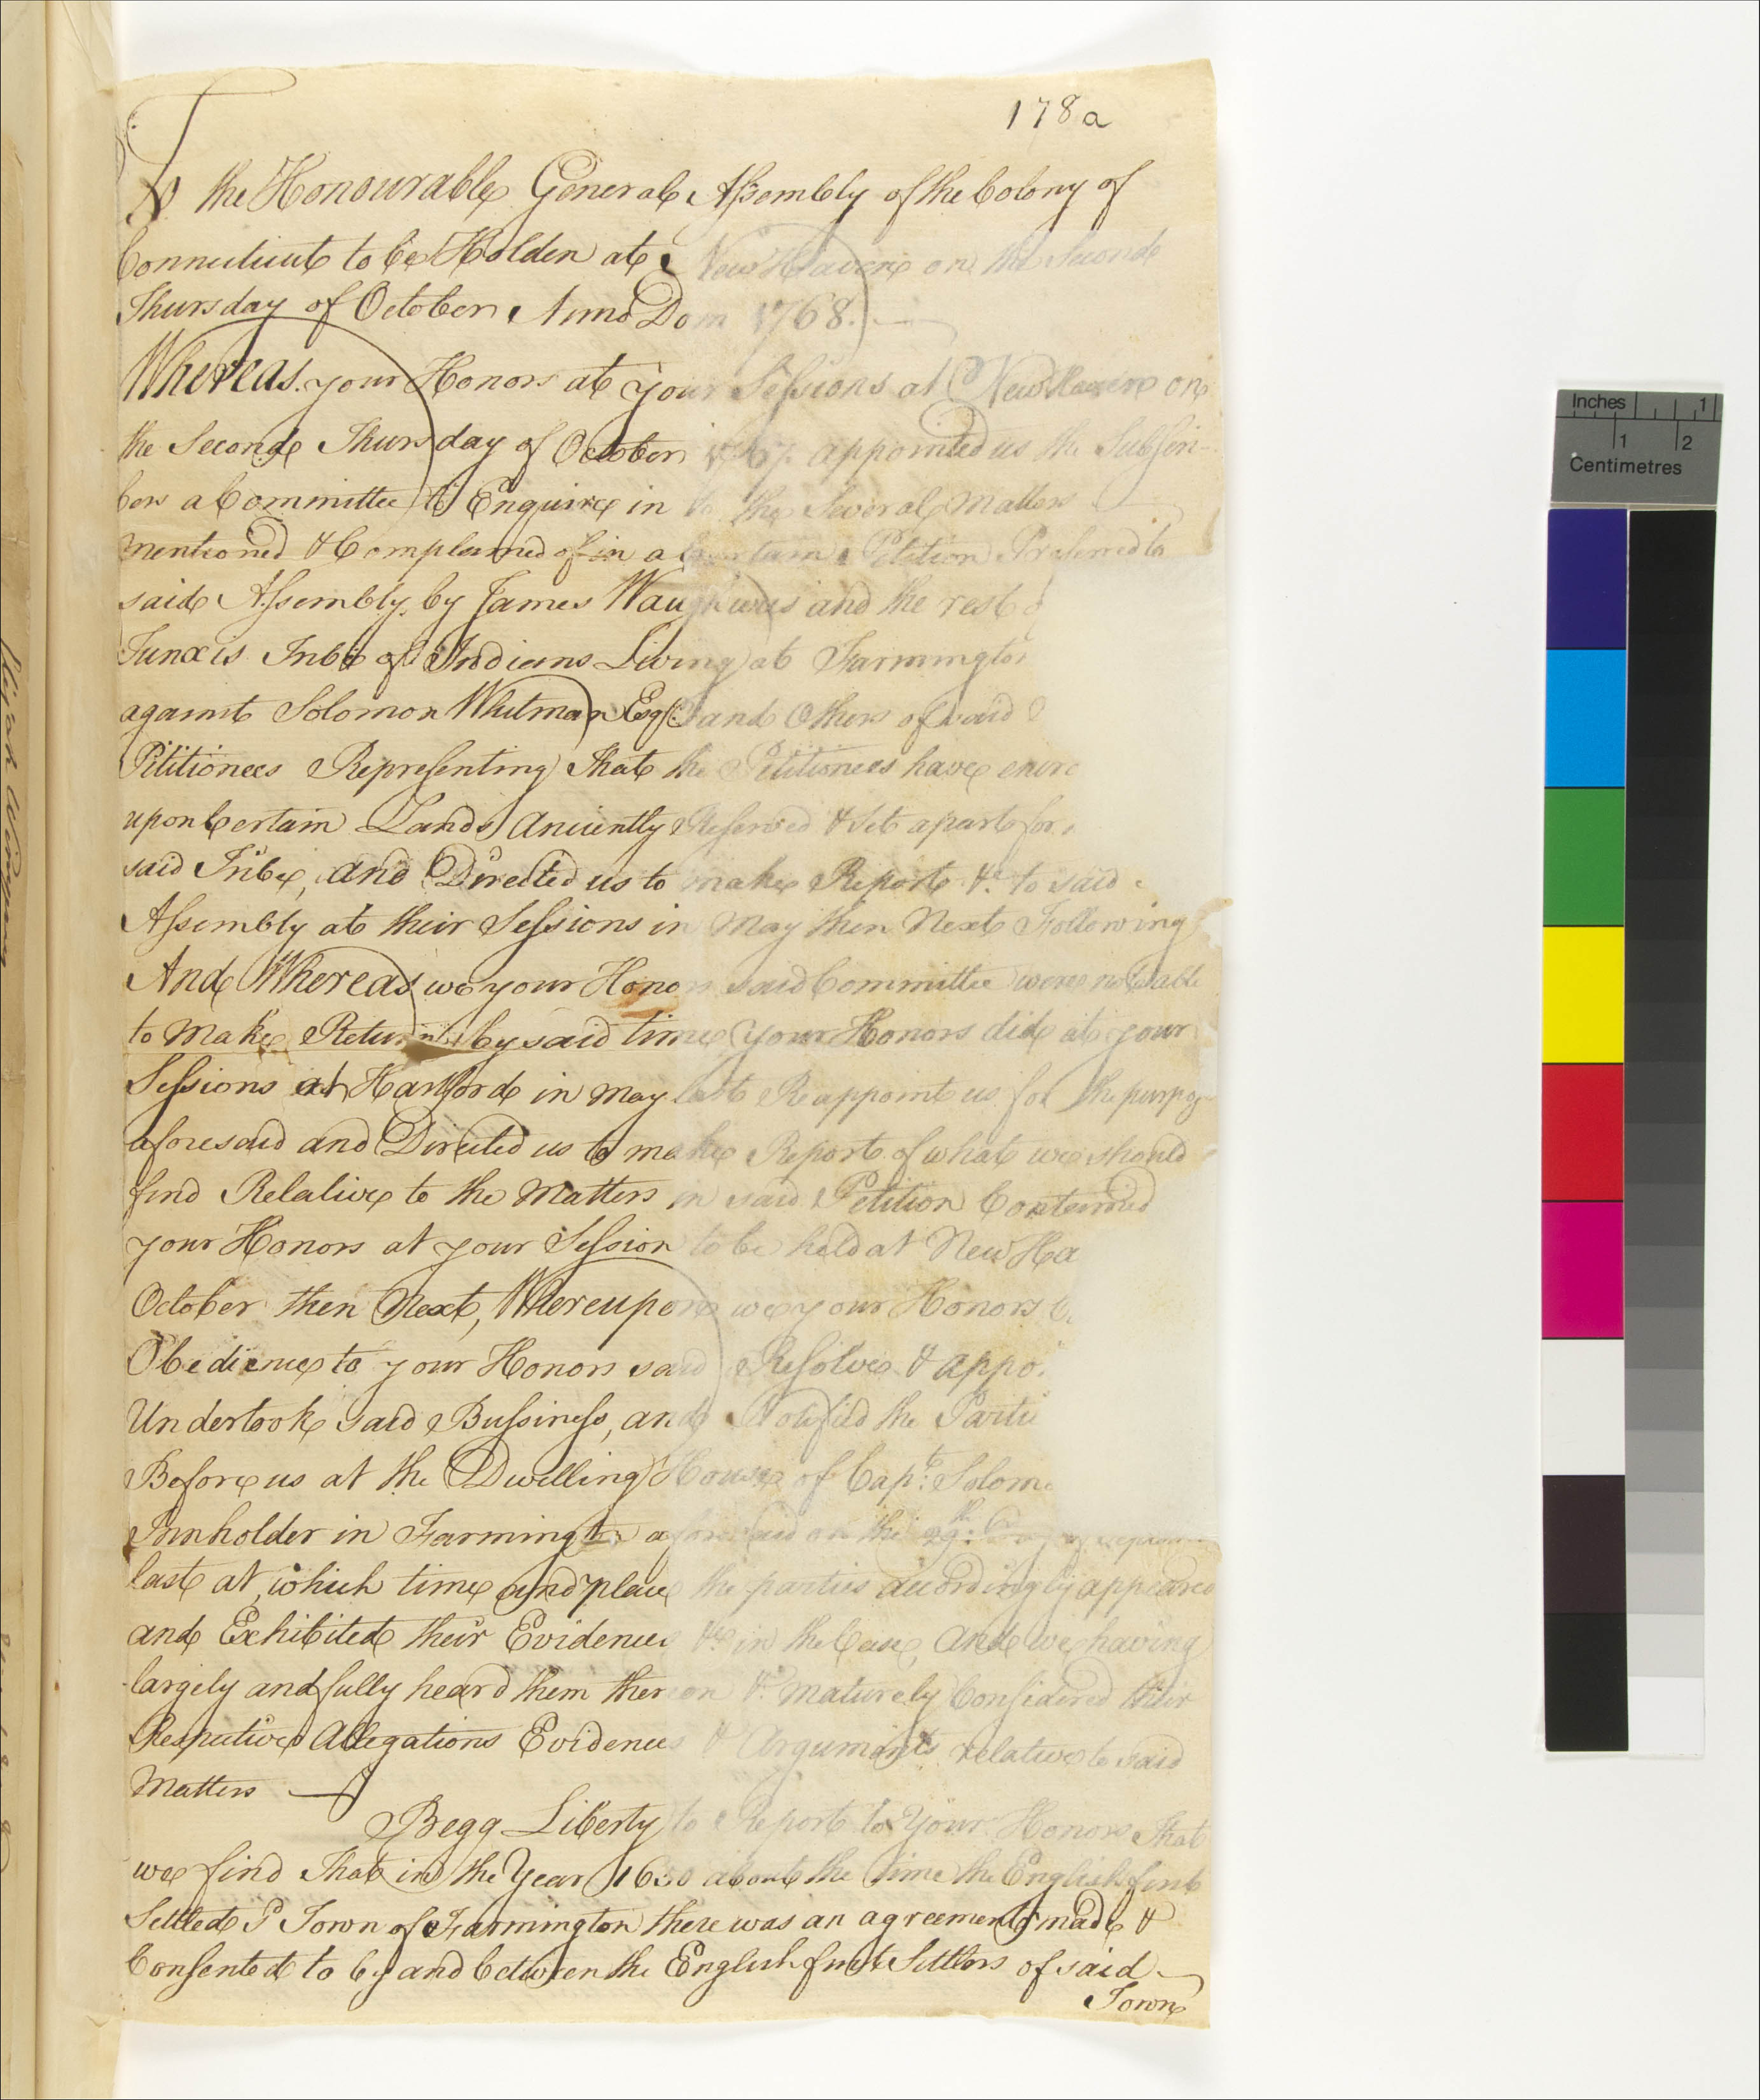 178a
To the Honourable General Assembly of the Colony of
Connecticut to be Holden at New Haven on the Second
Thursday of October Anno Dom 1768.
Whereas your Honors at your Sessions at New Haven on
the Second Thursday of October 1767 appointed us the Subscri-
bers a Committee to Enquire in to the Several Matters
mentioned & Complained of in a Certain Petition Preferred to
said Assembly by James Waughwas and the rest
Tunxis Tribe of Indians Living at Farmington
against Solomon Whitman Esqr. and Others of said
Petitionees Representing that the Petitionees have encro
upon Certain Lands Anciently Reserved & Set apart for
said Tribe, and Directed us to make Report &c. to said
Assembly at their Sessions in May then Next Following
And Whereas we your Honors said Committee were not able
to Make Return by said time your Honors did at your
Sessions at Hartford in May last Reappoint us for the purpose
aforesaid and Directed us to make Report of what we should
find Relative to the Matters in said Petition Contained
your Honors at your Session to be held at New Ha
October then Next, Whereupon we your Honors
Obedience to your Honors said Resolve & appo
Undertook said Bussiness, and Notified the Partie
Before us at the Dwelling House of Capt. Solom
Innholder in Farmington aforesaid on the 29th. Day of
last at which time and place the parties accordingly appeared
and Exhibited their Evidences &c in the Case, and we having
largely and fully heard them thereon & maturely Considered their
Respective Allegations Evidences & Arguments relative to said
Matters
Begg Liberty to Report to Your Honors that
we find That in the Year 1650 about the time the English first
Settled sd Town of Farmington there was an agreement made &
Consented to by and between the English first Settlers of said
Town
Inches 1
1 2
Centimetres